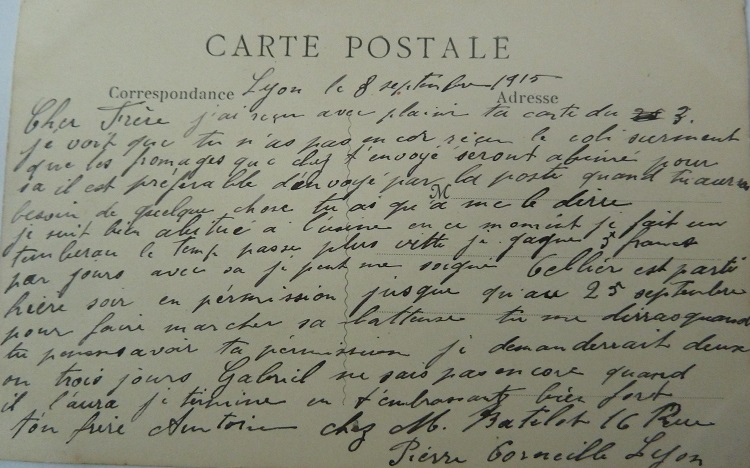 CARTE POSTALE
Correspondance Lyon le 8 septembre 1915
Adresse
Cher Frère j'ai reçu avec plaisir ta carte du 3.
je voit que tu n'as pas encor reçu le coli surment
que les fromages que chez t'envoyé seront abimé pour
sa il est préférable d'envoyé par la poste quand tu auras
M
besoin de quelque chose tu as qu'a me le dirre
je suit bien abitué a l'usine en ce moment je fait un
tombereau le temp passe plus vitte je gagne 5 francs
par jours avec sa je peut me soigné Cellier est parti
hière soir en permission jusque qu'au 25 septembre
pour faire marcher sa batteuse tu me dirras quand
tu penses avoir ta permission je demanderrait deux
ou trois jours Gabriel ne sais pas encore quand
il l'aura je termine en t'embrassant bien fort
ton frère Antoine chez M. Batelot 16 Rue
Pierre Corneille Lyon